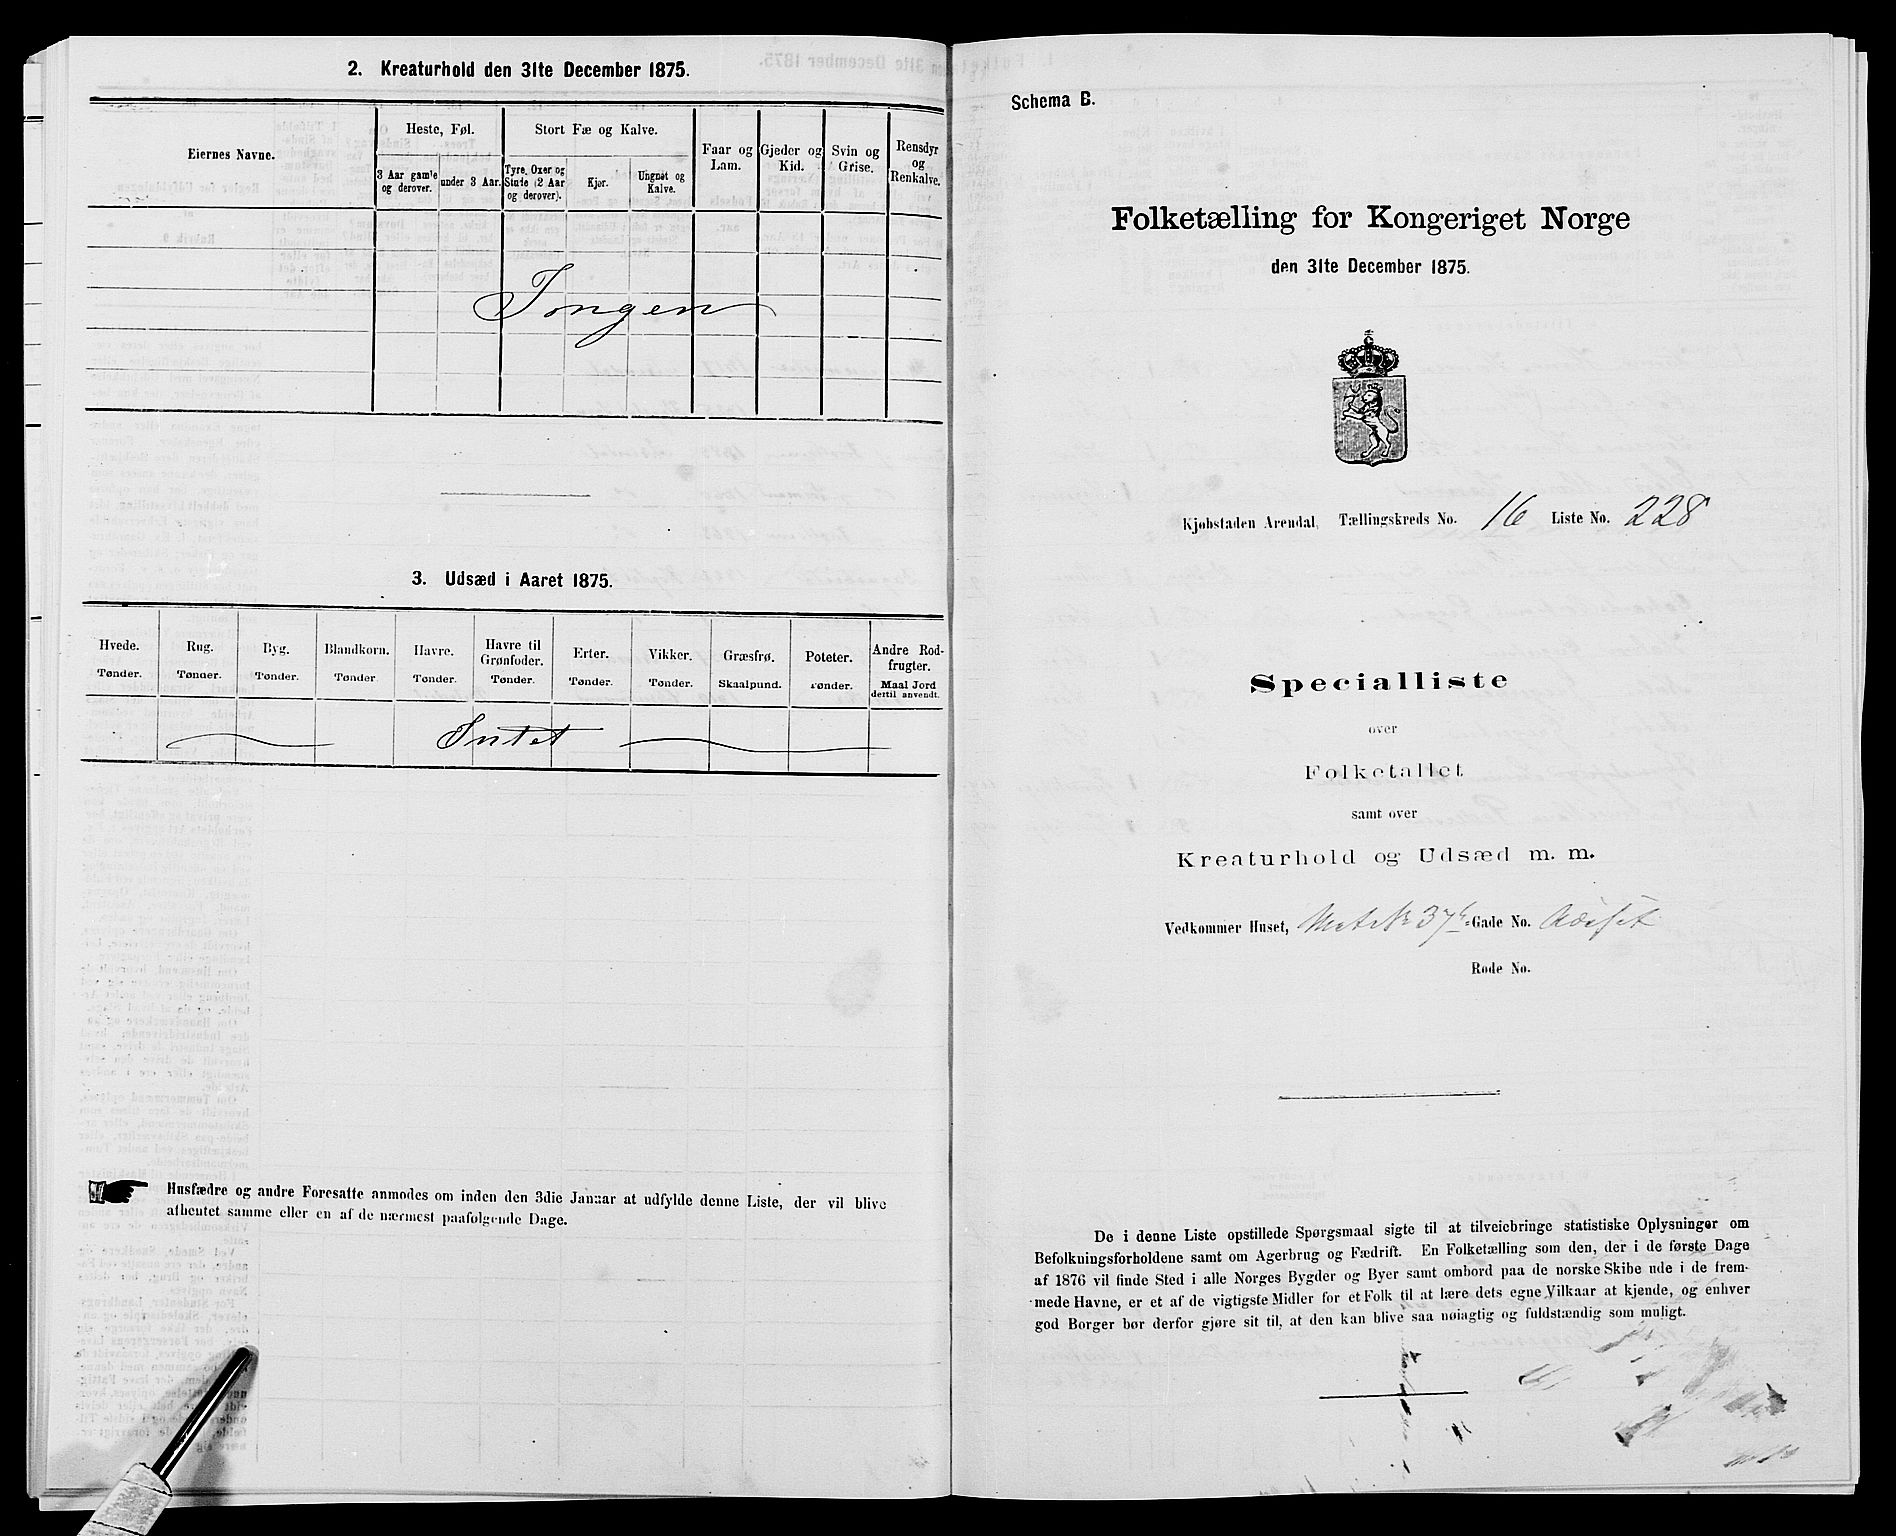 2. Kreaturhold den 31te December 1875.
Eiernes Navne.
Heste, Føl.
3 Aar gamle og derover.
under 3 Aar.
Stort Fæ og Kalve.
Tyre, Oxer og Stude (2 Aar og derover).
Kjør.
Ungnøt og Kalve.
Faar og Lam.
Gjeder og Kid.
Svin og Grise.
Rensdyr og Renkalve.
Ingen
3. Udsæd i Aaret 1875.
Hvede. Tønder.
Rug. Tønder.
Byg. Tønder.
Blandkorn. Tønder.
Havre. Tønder.
Havre til Grønfoder. Tønder.
Erter. Tønder.
Vikker. Tønder.
Græsfrø. Skaalpund.
Poteter. Tønder.
Andre Rodfrugter. Maal Jord dertil anvendt.
Intet
Husfædre og andre Foresatte anmodes om inden den 3die Januar at udfylde denne Liste, der vil blive
afhentet samme eller en af de nærmest paafølgende Dage.
Schema B.
Folketælling for Kongeriget Norge
den 31te December 1875.
Kjøbstaden Arendal, Tællingskreds No. 16 Liste No. 228
Specialliste
over
Folketallet
samt over
Kreaturhold og Udsæd m. m.
Vedkommer Huset, Matr № 37 Gade No.
Rode No.
De i denne Liste opstillede Spørgsmaal sigte til at tilveiebringe statistiske Oplysninger om
Befolkningsforholdene samt om Agerbrug og Fædrift. En Folketælling som den, der i de første Dage
af 1876 vil finde Sted i alle Norges Bygder og Byer samt ombord paa de norske Skibe ude i de frem-
mede Havne, er et af de vigtigste Midler for et Folk til at lære dets egne Vilkaar at kjende, og enhver
god Borger bør derfor gjøre sit til, at den kan blive saa nøiagtig og fuldstændig som muligt.